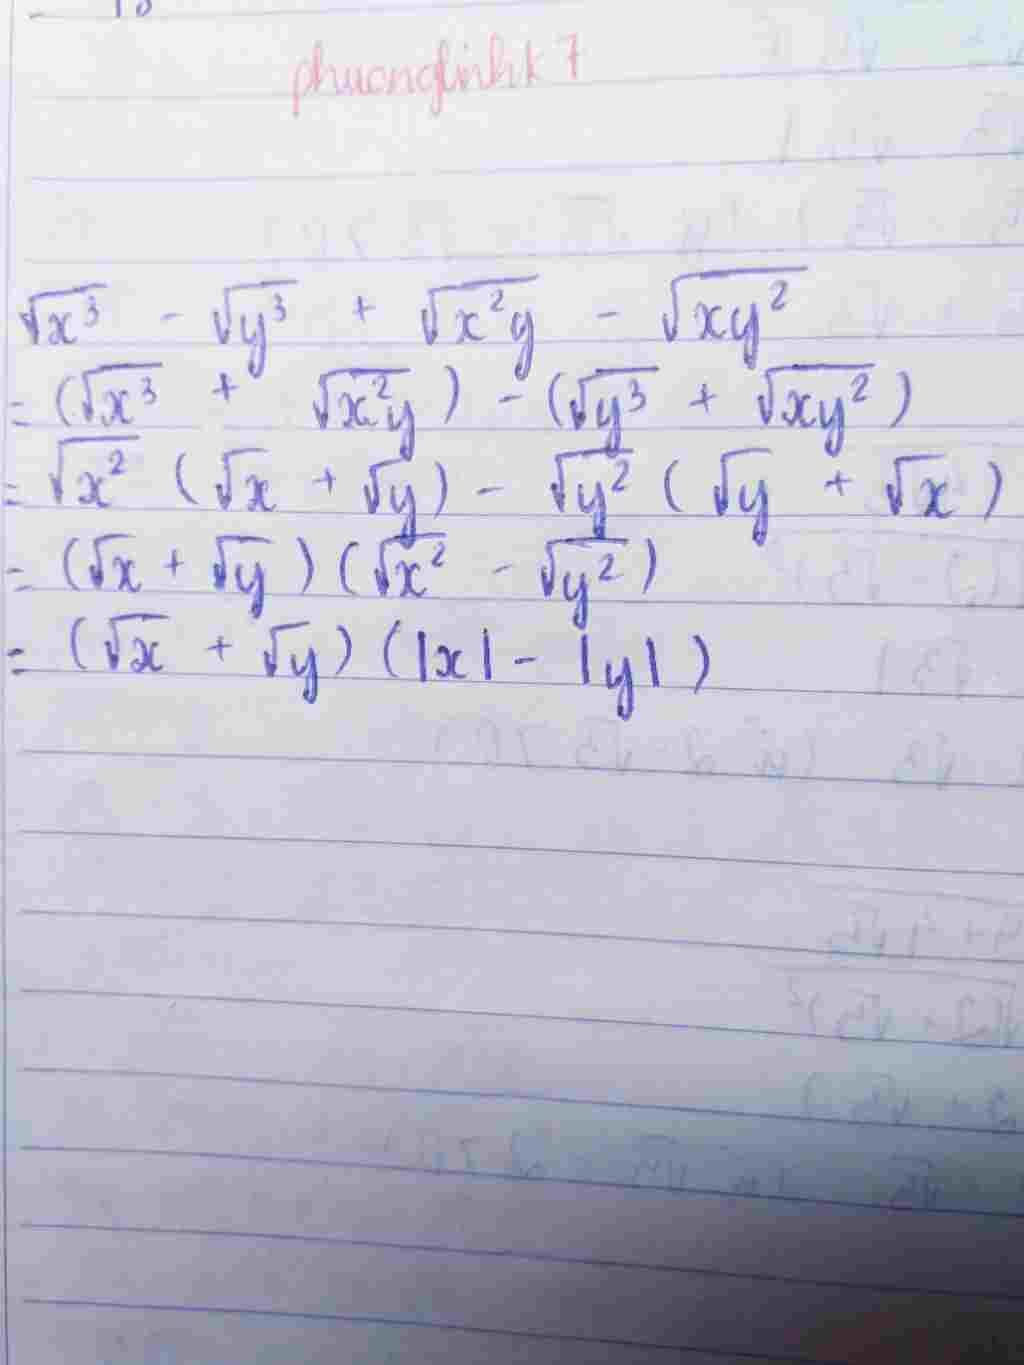 phuonglinhk7
√x³ - √y³ + √x²y - √xy²
= (√x³ + √x²y) - (√y³ + √xy²)
= √x² (√x + √y) - √y² (√y + √x)
= (√x + √y) (√x² - √y²)
= (√x + √y) (|x| - |y|)